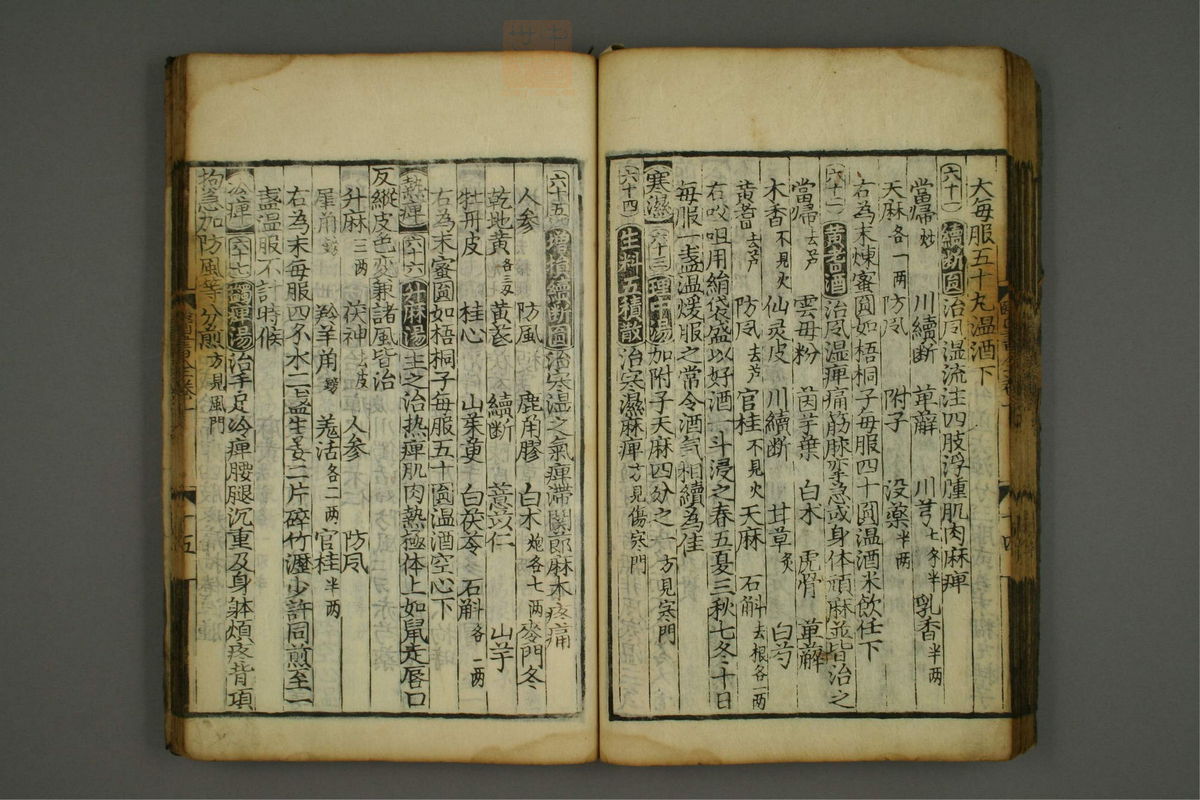 大每服五十丸温酒下
六十一 續斷圓 治风湿流注四肢浮腫肌肉麻痺
當歸炒 川續断 萆薢 川芎七錢半 乳香半两
天麻各一两 防风 附子 没藥半两
右為末煉蜜圓如梧桐子每服四十圓温酒米飲任下
六十二 黄耆酒 治风湿痺痛筋脉挛急或身体頑麻並皆治之
當歸去芦 雲毋粉 茵芋葉 白朮 虎骨 萆薢
木香不見火 仙灵皮 川續断 甘草炙 白芍
黄耆去芦 防风去芦 官桂不見火 天麻 石斛去根各一两
右㕮咀用絹袋盛以好酒一斗浸之春五夏三秋七冬十日
每服一盞温煖服之常令酒气相續為佳
寒濕 六十三 理中湯 加附子天麻四分之一方見寒門
六十四 生料五積散 治寒濕麻痺方見傷寒門
六十五 增損續断圓 治寒湿之氣痺滯関節麻木疼痛
人参 防風 鹿角膠 白朮炮各七两 麥門冬
乾地黄各三两 黄芪 續断 薏苡仁 山芋
牡丹皮 桂心 山茱萸 白茯苓 石斛各一两
右為末蜜圓如梧桐子每服五十圓温酒空心下
熱痺 六十六 升麻湯 主之治热痺肌肉熱極体上如鼠走唇口
反縱皮色变兼諸風皆治
升麻三两 茯神去皮 人参 防风
犀角鎊 羚羊角鎊 羗活各二两 官桂半两
右為末每服四不水二盞生姜二片碎竹瀝少許同煎至一
盞温服不計時候
冷痺 六十七 蠲痺湯 治手足冷痺腰腿沉重及身躰煩疼背項
拘急加防風等分煎方見風門
十四
十五